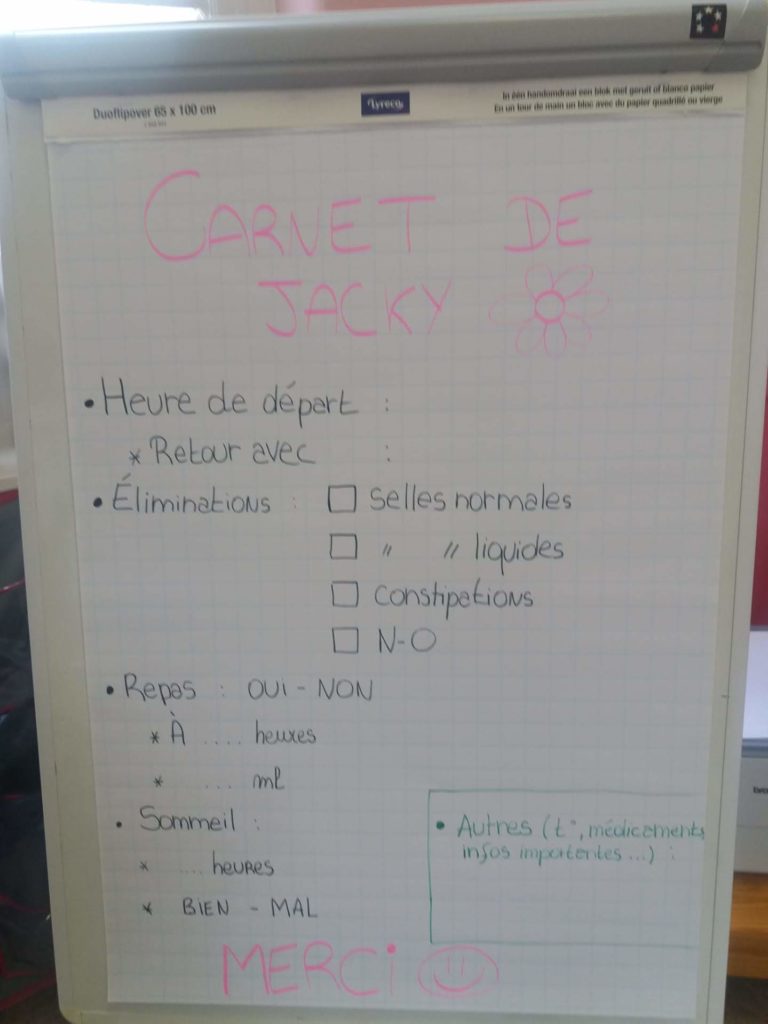 Duoflipover 65 x 100 cm
Lyreco
In één handomdraai een blok met geruit of blanco papier
En un tour de main un bloc avec du papier quadrillé ou vierge
CARNET DE
JACKY
• Heure de départ :
* Retour avec :
• Éliminations : □ Selles normales
□ " " liquides
□ Constipations
□ N-O
• Repas : OUI - NON
* À .... heures
* ... ml
• Sommeil :
* .... heures
* BIEN - MAL
• Autres (t°, médicaments,
infos importantes ...) :
MERCI